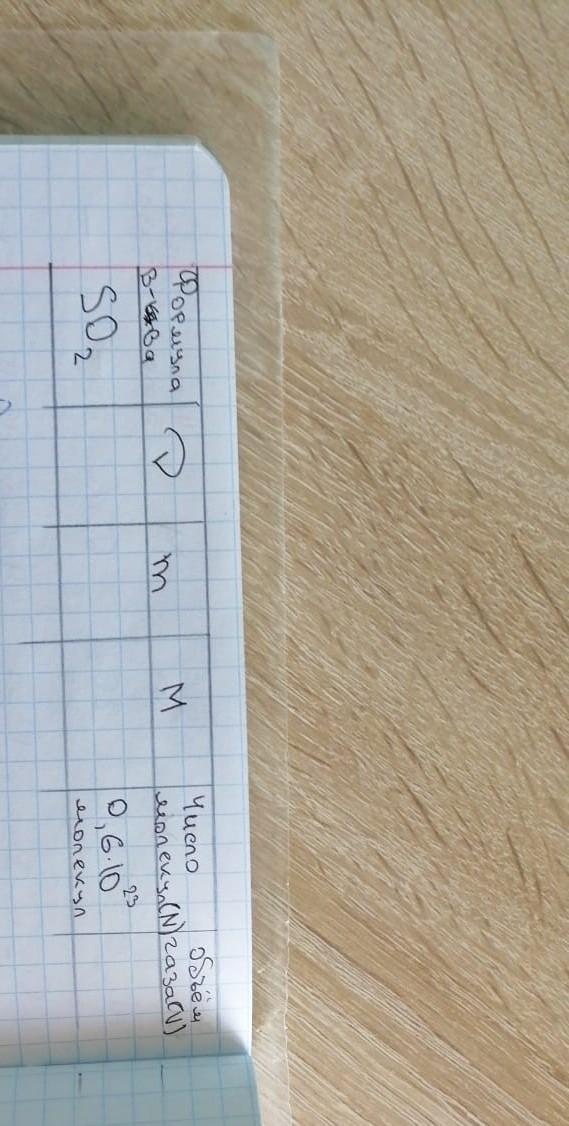 Формула
в-ва
ν
m
M
Число
молекул(N)
Объём
газа(V)
SO₂
0,6·10²³
молекул